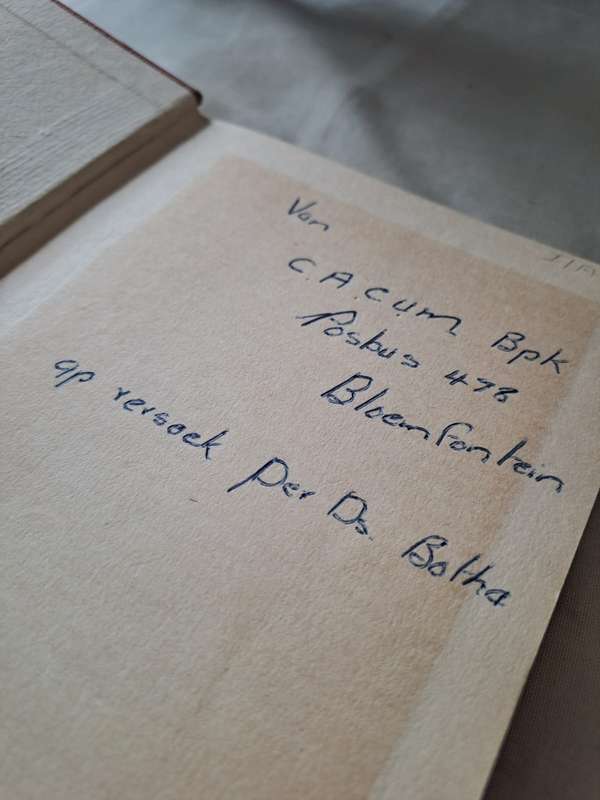 Van
C.A.C.U.M. Bpk
Posbus 478
Bloemfontein
op versoek per Ds. Botha